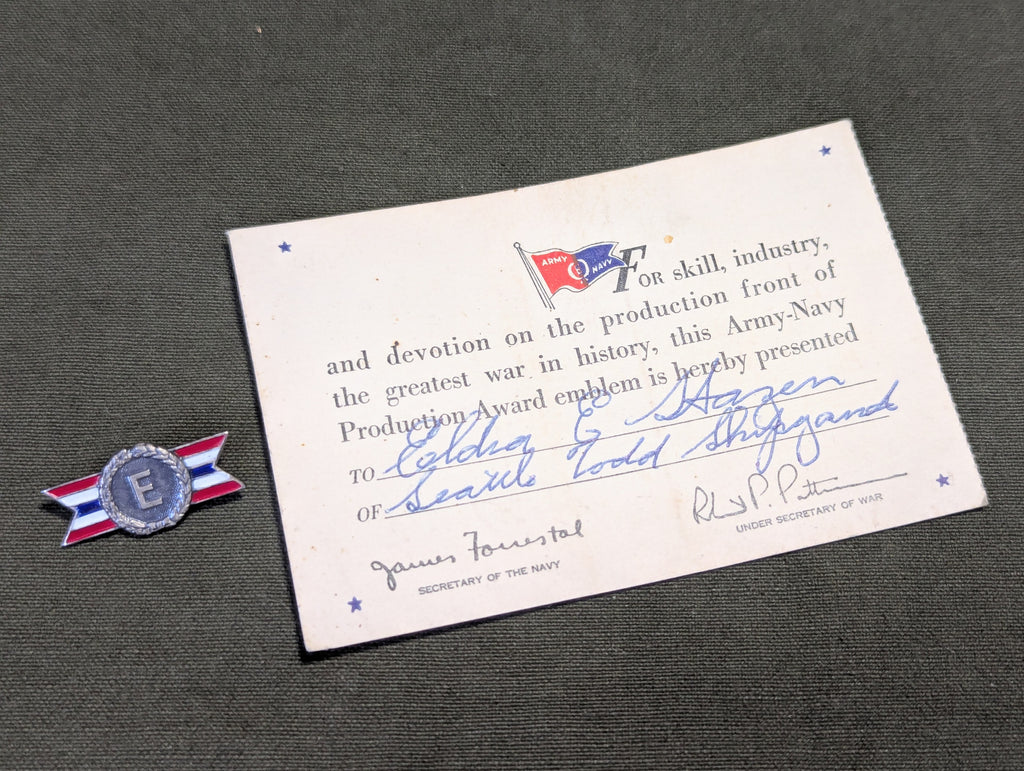 E
ARMY E NAVY
FOR skill, industry,
and devotion on the production front of
the greatest war in history, this Army-Navy
Production Award emblem is hereby presented
TO Eldra E Stazen
OF Seattle Todd Shipyard
James Forrestal
SECRETARY OF THE NAVY
Robert P. Patterson
UNDER SECRETARY OF WAR